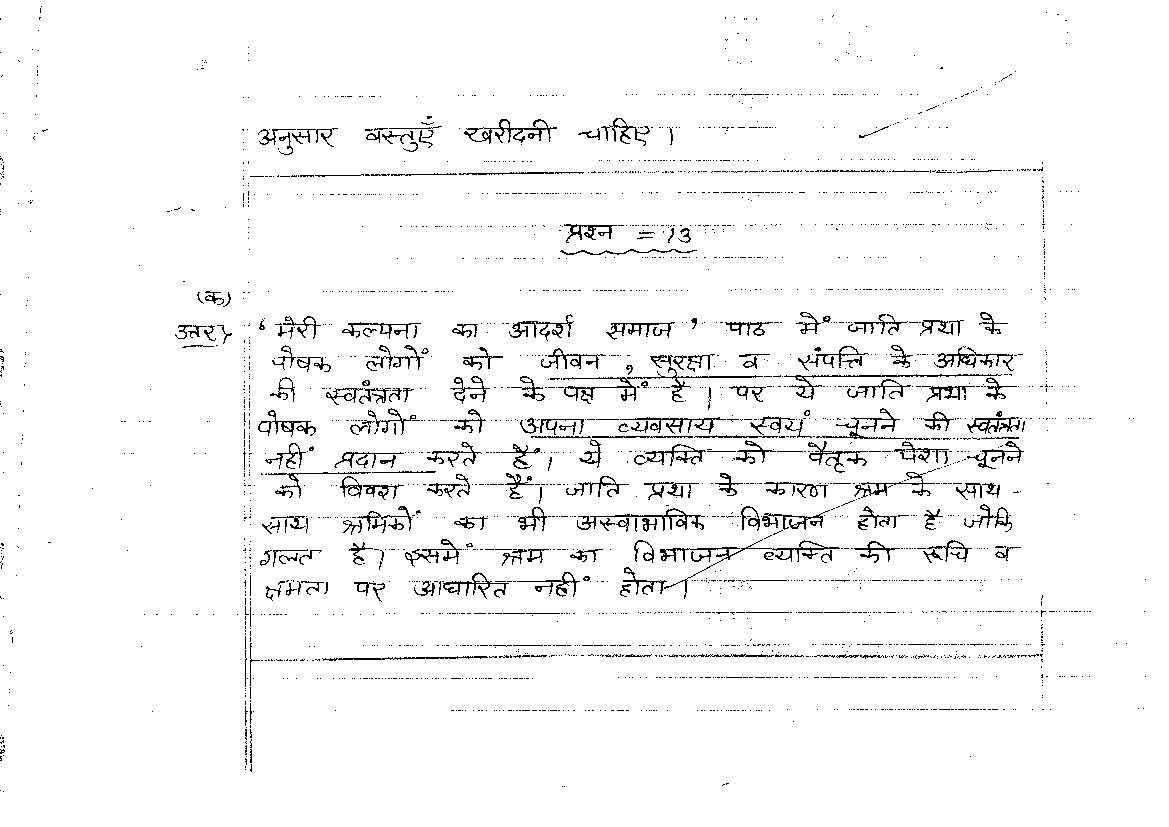 अनुसार वस्तुएँ खरीदनी चाहिए।
प्रश्न = 13
(क)
उत्तर> 'मेरी कल्पना का आदर्श समाज' पाठ में जाति प्रथा के
पोषक लोगों को जीवन, सुरक्षा व संपत्ति के अधिकार
की स्वतंत्रता देने के पक्ष में हैं। पर ये जाति प्रथा के
पोषक लोगों को अपना व्यवसाय स्वयं चूनने की स्वतंत्रता
नहीं प्रदान करते हैं। ये व्यक्ति को पैतृक पेशा चूनने
को विवश करते हैं। जाति प्रथा के कारण श्रम के साथ-
साथ श्रमिकों का भी अस्वाभाविक विभाजन होता है जोकि
गलत है। इसमें श्रम का विभाजन व्यक्ति की रूचि व
क्षमता पर आधारित नहीं होता।